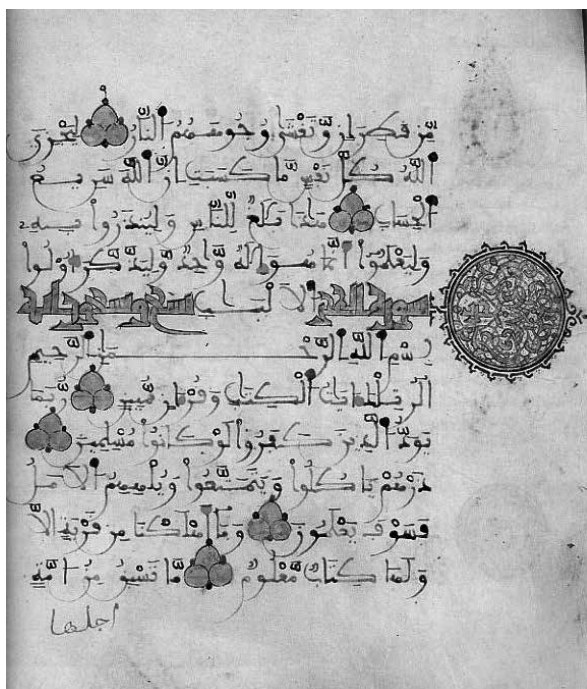 مِّن قَطِرَانٍ وَّتَغْشَىٰ وُجُوهَهُمُ ٱلنَّارُ لِيَجْزِيَ
ٱللَّهُ كُلَّ نَفْسٍ مَّا كَسَبَتْ إِنَّ ٱللَّهَ سَرِيعُ
ٱلْحِسَابِ هَٰذَا بَلَٰغٌ لِّلنَّاسِ وَلِيُنذَرُوا۟ بِهِۦ
وَلِيَعْلَمُوٓا۟ أَنَّمَا هُوَ إِلَٰهٌ وَّٰحِدٌ وَلِيَذَّكَّرَ أُو۟لُوا۟
سورة الحجر ٱلَالْبَٰبِ تسع وتسعون اية
بِسْمِ ٱللَّهِ ٱلرَّحْمَٰنِ ٱلرَّحِيمِ
الٓر تِلْكَ ءَايَٰتُ ٱلْكِتَٰبِ وَقُرْءَانٍ مُّبِينٍ رُّبَمَا
يَوَدُّ ٱلَّذِينَ كَفَرُوا۟ لَوْ كَانُوا۟ مُسْلِمِينَ
ذَرْهُمْ يَاكُلُوا۟ وَيَتَمَتَّعُوا۟ وَيُلْهِهِمُ ٱلَامَلُ
فَسَوْفَ يَعْلَمُونَ وَمَآ أَهْلَكْنَا مِن قَرْيَةٍ إِلَّا
وَلَهَا كِتَابٌ مَّعْلُومٌ مَّا تَسْبِقُ مِنُ امَّةٍ
اجلها